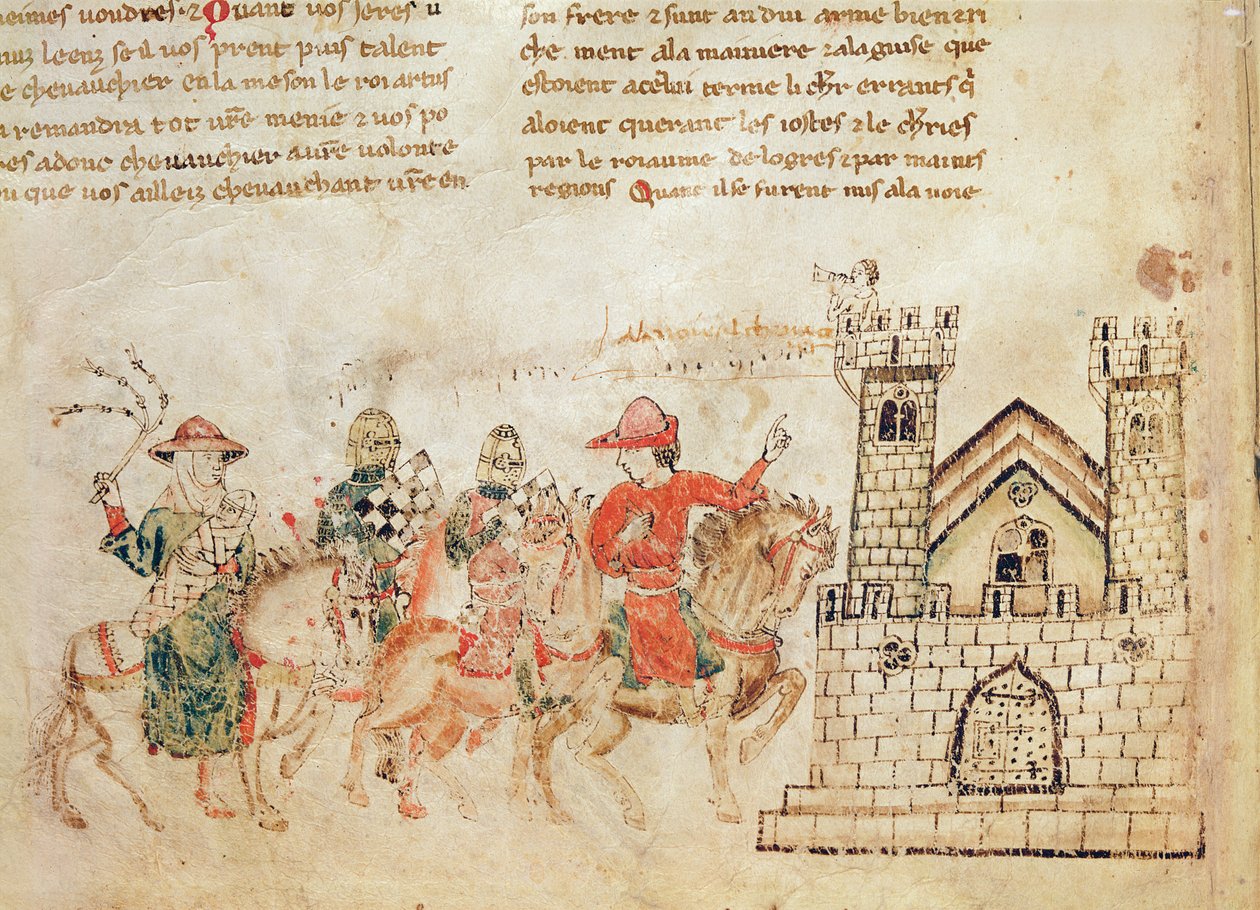 heimes voudres ⁊ Quant vos seres u
leenz se il vos prent puis talent
e chevauchier en la meson le roi artus
remandra tot vr̃e menie ⁊ vos po
res adonc chevauchier a vr̃e volonte
ou que vos ailleiz chevauchant vr̃e en
son frere ⁊ sunt andui arme bien ⁊ ri
che ment a la maniere ⁊ a la guise que
estoient a celui terme li chr̃ errants q̃
aloient querant les iostes ⁊ le chr̃ies
par le roiaume de logres ⁊ par maintes
regions Quant il se furent mis a la voie